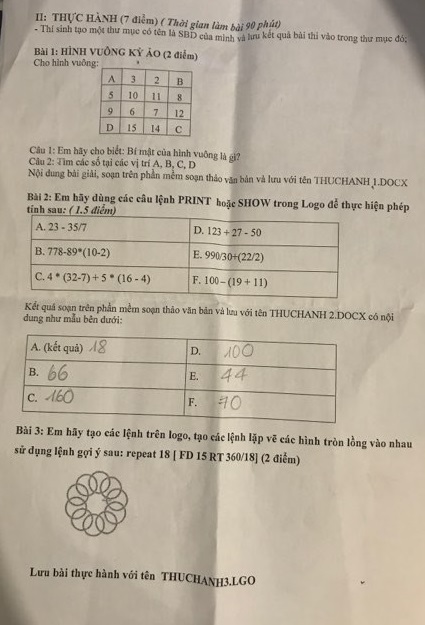 II: THỰC HÀNH (7 điểm) ( Thời gian làm bài 90 phút)
- Thí sinh tạo một thư mục có tên là SBD của mình và lưu kết quả bài thi vào trong thư mục đó;
Bài 1: HÌNH VUÔNG KỲ ẢO (2 điểm)
Cho hình vuông:
A 3 2 B
5 10 11 8
9 6 7 12
D 15 14 C
Câu 1: Em hãy cho biết: Bí mật của hình vuông là gì?
Câu 2: Tìm các số tại các vị trí A, B, C, D
Nội dung bài giải, soạn trên phần mềm soạn thảo văn bản và lưu với tên THUCHANH 1.DOCX
Bài 2: Em hãy dùng các câu lệnh PRINT hoặc SHOW trong Logo để thực hiện phép
tính sau: ( 1.5 điểm)
A. 23 - 35/7 D. 123 + 27 - 50
B. 778-89*(10-2) E. 990/30+(22/2)
C. 4 * (32-7) + 5 * (16 - 4) F. 100 – (19 + 11)
Kết quả soạn trên phần mềm soạn thảo văn bản và lưu với tên THUCHANH 2.DOCX có nội
dung như mẫu bên dưới:
A. (kết quả) 18 D. 100
B. 66 E. 44
C. 160 F. 70
Bài 3: Em hãy tạo các lệnh trên logo, tạo các lệnh lặp vẽ các hình tròn lồng vào nhau
sử dụng lệnh gợi ý sau: repeat 18 [ FD 15 RT 360/18] (2 điểm)
Lưu bài thực hành với tên THUCHANH3.LGO